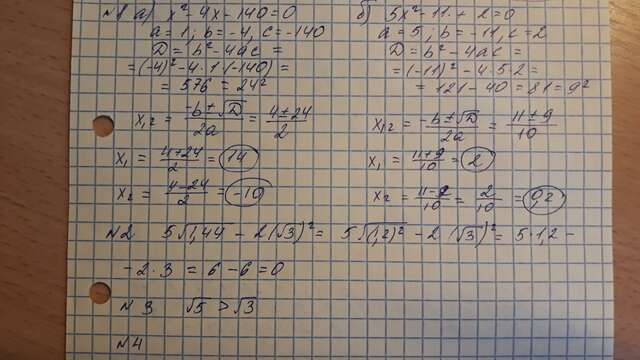 №1 а) x² - 4x - 140 = 0
a = 1, b = -4, c = -140
D = b² - 4ac =
= (-4)² - 4·1·(-140) =
= 576 = 24²
x₁,₂ = (-b ± √D)/2a = (4 ± 24)/2
x₁ = (4+24)/2 = 14
x₂ = (4-24)/2 = -10
б) 5x² - 11. + 2 = 0
a = 5, b = -11, c = 2
D = b² - 4ac =
= (-11)² - 4·5·2 =
= 121 - 40 = 81 = 9²
x₁,₂ = (-b ± √D)/2a = (11 ± 9)/10
x₁ = (11+9)/10 = 2
x₂ = (11-9)/10 = 2/10 = 0,2
№2 5√1,44 - 2(√3)² = 5√(1,2)² - 2(√3)² = 5·1,2 -
- 2·3 = 6 - 6 = 0
№3 √5 > √3
№4